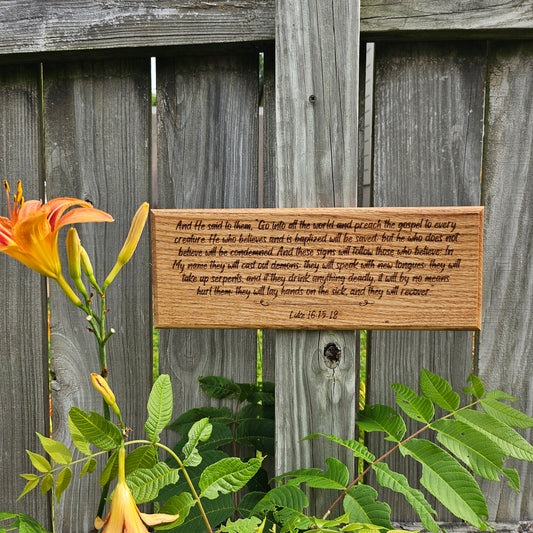 And He said to them, "Go into all the world and preach the gospel to every
creature. He who believes and is baptized will be saved; but he who does not
believe will be condemned. And these signs will follow those who believe: In
My name they will cast out demons; they will speak with new tongues; they will
take up serpents; and if they drink anything deadly, it will by no means
hurt them; they will lay hands on the sick, and they will recover.
Luke 16:15-18